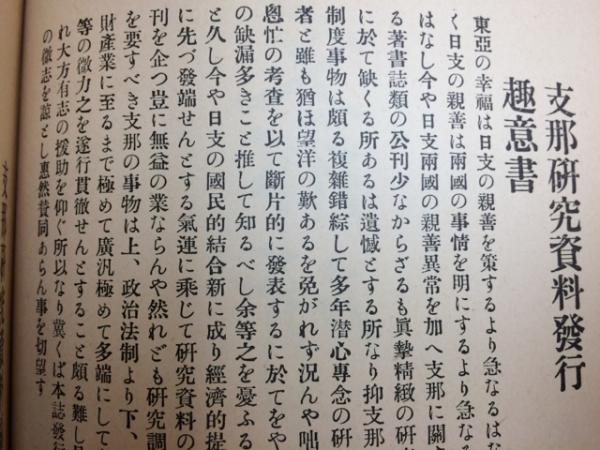 支那硏究資料發行
趣意書
東亞の幸福は日支の親善を策するより急なるはな
く日支の親善は兩國の事情を明にするより急なる
はなし今や日支兩國の親善異常を加へ支那に關す
る著書誌類の公刊少なからざるも眞摯精緻の硏
に於て缺くる所あるは遺憾とする所なり抑支那
制度事物は頗る複雜錯綜して多年潜心專念の硏
者と雖も猶ほ望洋の歎あるを免がれず況んや咄
恩忙の考査を以て斷片的に發表するに於てをや
の缺漏多きこと推して知るべし余等之を憂ふる
と久し今や日支の國民的結合新に成り經濟的提
に先づ發端せんとする氣運に乘じて硏究資料の
刊を企つ豈に無益の業ならんや然れども硏究調
を要すべき支那の事物は上、政治法制より下、
財產業に至るまで極めて廣汎極めて多端にして
等の微力之を遂行貫徹せんとすること頗る難し
れ大方有志の援助を仰ぐ所以なり冀くば本誌發行
の微志を諒とし惠然賛同あらん事を切望す